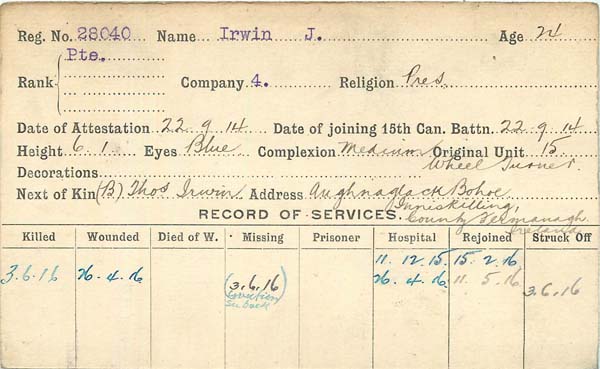 Reg. No. 28040 Name Irwin J. Age 24
Rank Pte. Company 4. Religion Pres.
Date of Attestation 22.9.14 Date of joining 15th Can. Battn. 22.9.14
Height 6.1 Eyes Blue Complexion Medium Original Unit 15
Decorations Wheel Turner.
Next of Kin (B) Thos Irwin Address Aughnaglack Bohoe
Inniskilling,
RECORD OF SERVICES. County Fermanagh
Ireland
Killed Wounded Died of W. Missing Prisoner Hospital Rejoined Struck Off
11.12.15 15.2.16
3.6.16 26.4.16 (3.6.16 26.4.16 11.5.16 3.6.16
See back)